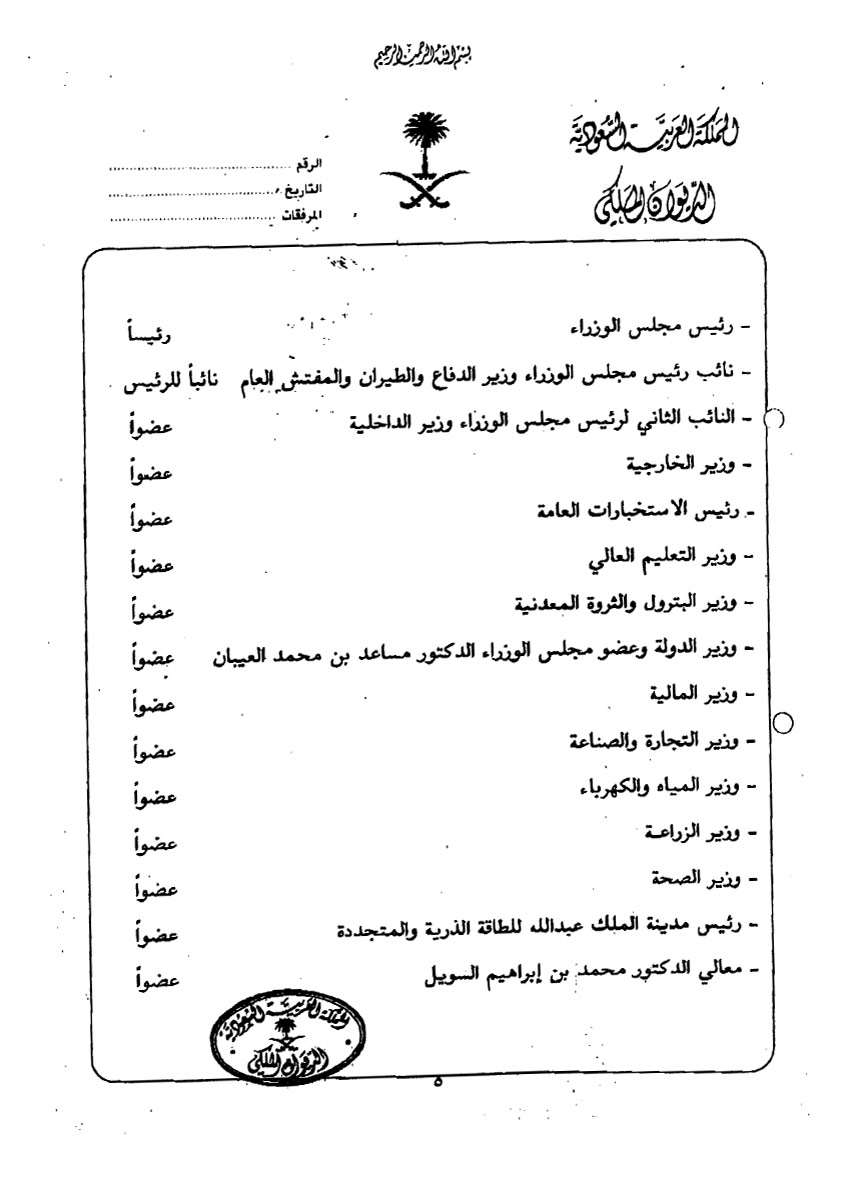 بسم الله الرحمن الرحيم
المملكة العربية السعودية
الديوان الملكي
الرقم ........................
التاريخ ........................
المرفقات ........................
- رئيس مجلس الوزراء رئيساً
- نائب رئيس مجلس الوزراء وزير الدفاع والطيران والمفتش العام نائباً للرئيس
- النائب الثاني لرئيس مجلس الوزراء وزير الداخلية عضواً
- وزير الخارجية عضواً
- رئيس الاستخبارات العامة عضواً
- وزير التعليم العالي عضواً
- وزير البترول والثروة المعدنية عضواً
- وزير الدولة وعضو مجلس الوزراء الدكتور مساعد بن محمد العيبان عضواً
- وزير المالية عضواً
- وزير التجارة والصناعة عضواً
- وزير المياه والكهرباء عضواً
- وزير الزراعة عضواً
- وزير الصحة عضواً
- رئيس مدينة الملك عبدالله للطاقة الذرية والمتجددة عضواً
- معالي الدكتور محمد بن إبراهيم السويل عضواً
المملكة العربية السعودية
الديوان الملكي
٥